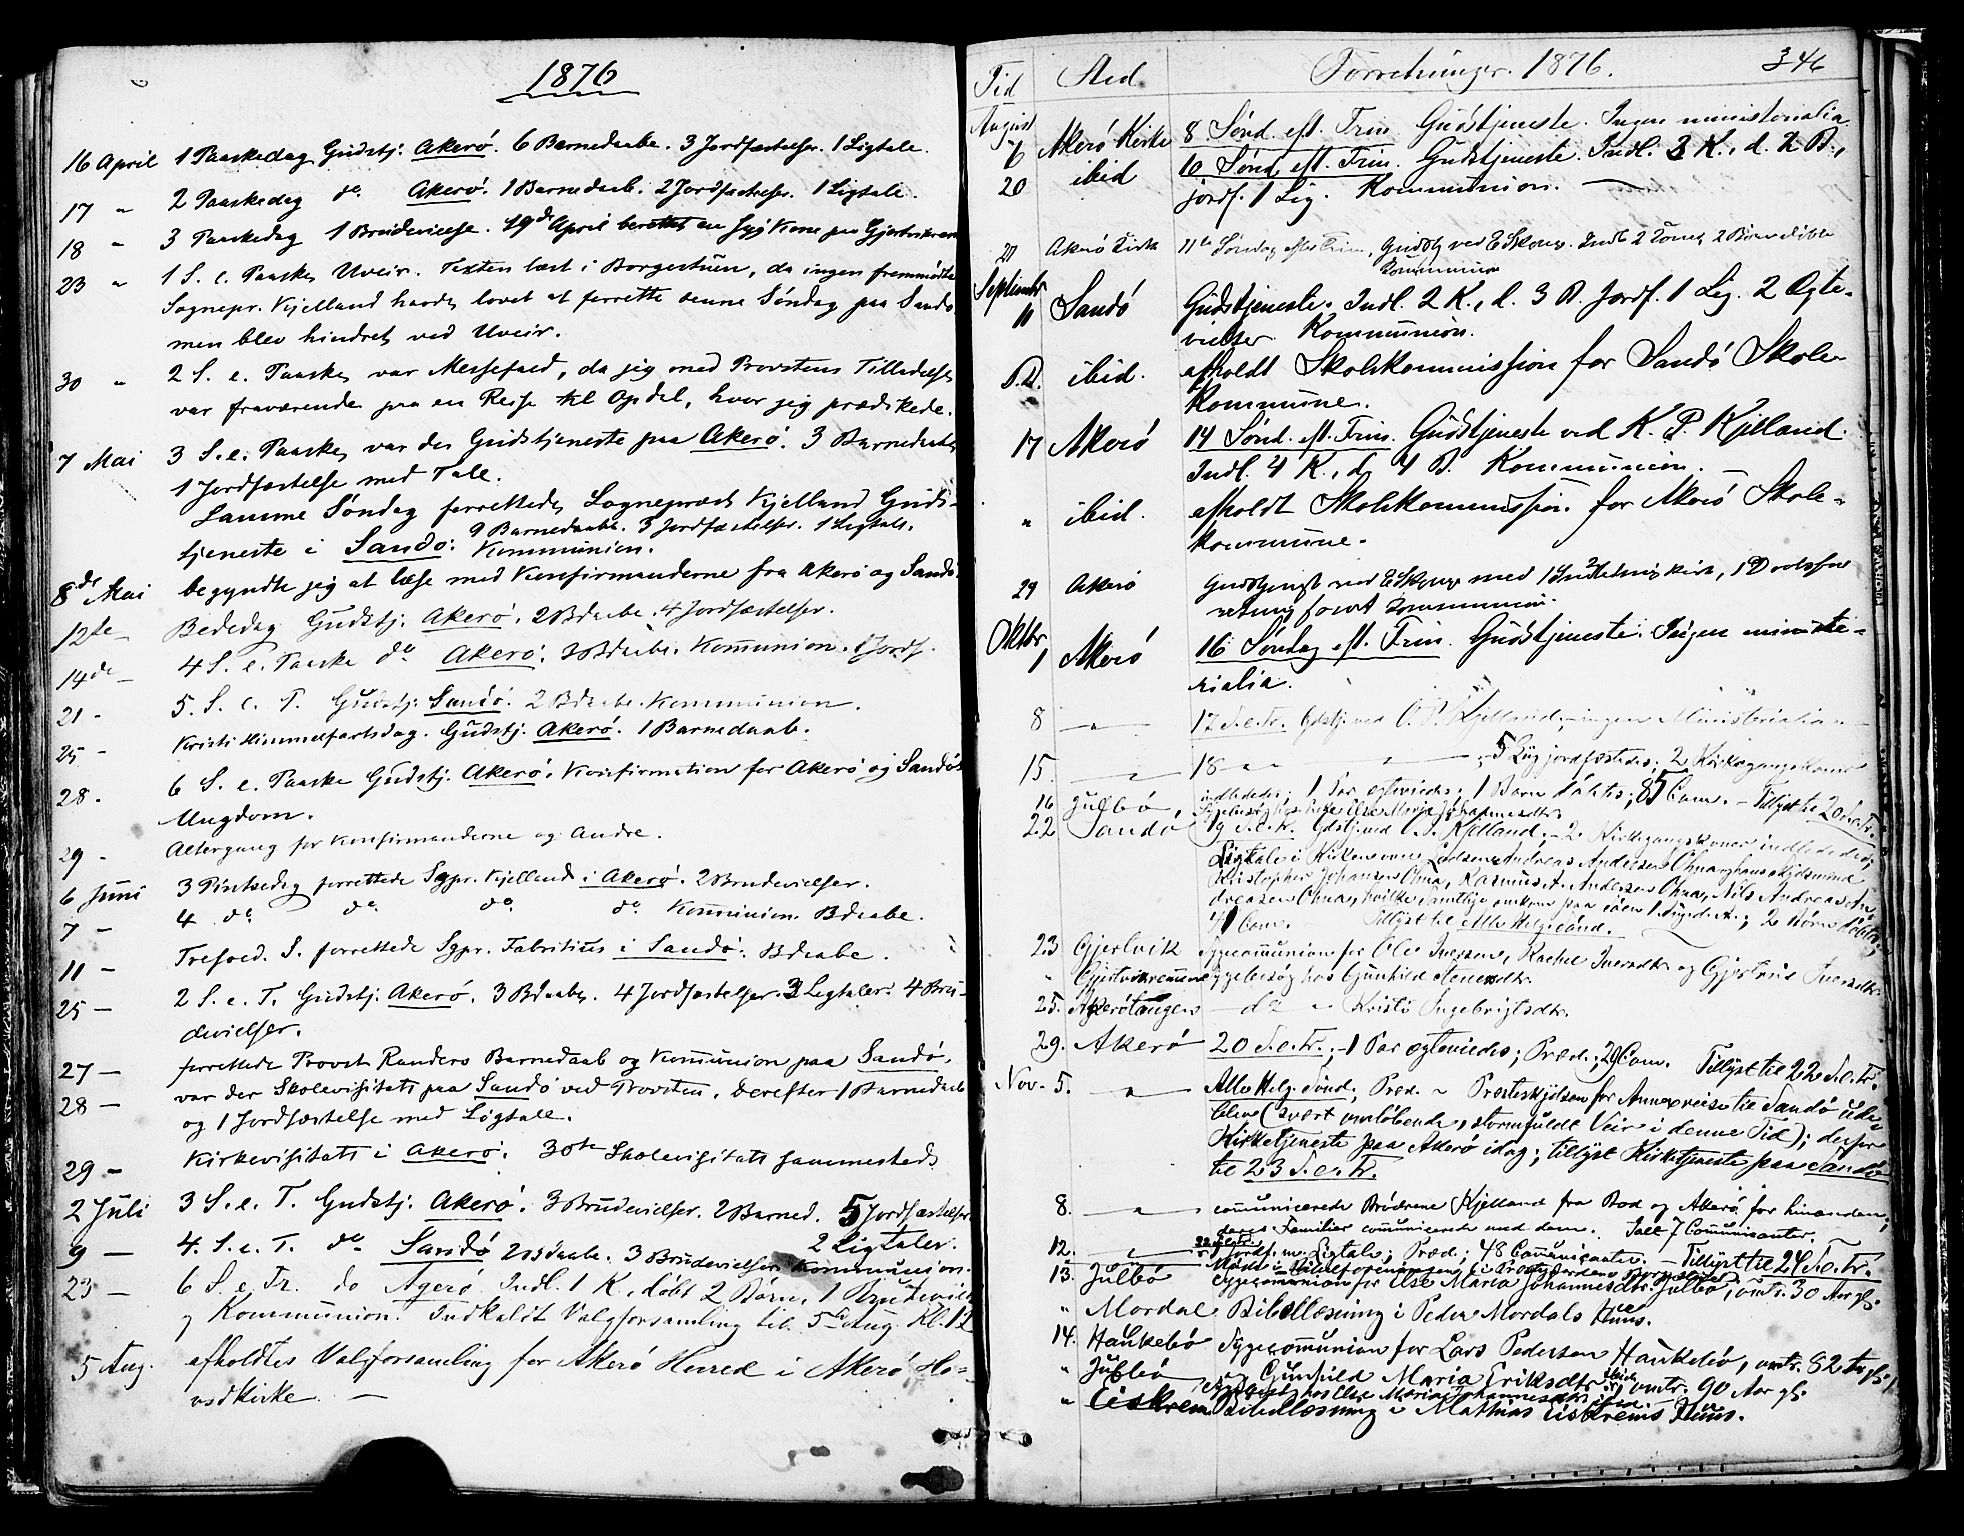 1876
16 April 1 Paaskedag Gudstj: Akerö. 6 Barnedaabe. 3 Jordfæstelser. 1 Ligtale.
17 " 2 Paaskedag do Akerö. 1 Barnedaab. 2 Jordfæstelser. 1 Ligtale.
18 " 3 Paaskedag 1 Brudevielse. 19de April berettet en syg Kone paa
23 " 1 S. e. Paaske, Uveir. Texten læst i Borgestuen, da ingen fremmødte
Sognepr. Kjelland havde lovet at forrette denne Søndag paa Sandö
men blev hindret ved Uveir.
30 " 2 S. e. Paaske, var Messefald, da jeg med Provstens Tilladelse
var fraværende paa en Reise til Opdal, hvor jeg prædikede.
7 Mai 3 S. e. Paaske, var der Gudstjeneste paa Akerö. 3 Barnedaabe,
1 Jordfæstelse med Tale.
Samme Søndag forrettede Sognepræst Kjelland Guds-
tjeneste i Sandö: 9 Barnedaabe. 3 Jordfæstelser. 1 Ligtale.
Kommunion.
8de Mai begyndte jeg at læse med Konfirmanderne fra Akerö og Sandö.
12te – Bededag Gudstj: Akerö. 2 Bdaabe. 4 Jordfæstelser.
14de – 4 S. e. Paaske do Akerö. Bdaabe. Kommunion. Jordf.
21 – 5. S. e. P. Gudstj: Sandö. 2 Bdaabe. Kommunion.
25 – Kristi Himmelfartsdag. Gudstj. Akerö. 1 Barnedaab.
28. 6 S. e. Paaske Gudstj. Akerö. Konfirmation for Akerö og Sandös
Ungdom.
29 – Altergang for Konfirmanderne og Andre.
6 Juni 3 Pintsedag forrettede Sgpr. Kjelland i Akerö. 2 Brudevielser.
7 – 4 do do do do Kommunion. Bdaabe.
11 – Trefold. S. forrettede Sgpr. Fabritius i Sandö. Bdaabe.
25 – 2 S. e. T. Gudstj. Akerö. 3 Bdaabe. 4 Jordfæstelser. 3 Ligtaler. 4 Bru-
devielser.
27 – forrettede Provst Randers Barnedaab og Kommunion paa Sandö.
28 – var der Skolevisitats paa Sandö ved Provsten. Derefter 1 Barnedaab
og 1 Jordfæstelse med Ligtale.
29 – Kirkevisitats i Akerö. 30te Skolevisitats sammesteds
2 Juli 3 S. e. T. Gudstj. Akerö. 3 Brudevielser. 2 Barned. 5 Jordfæstelser
2 Ligtaler.
9 – 4. S. e. T. do Sandö 2 Bdaabe. 3 Brudevielser. Kommunion.
23 – 6 S. e. Tr. do Agerö. Indl. 1 K., døbt 2 Børn, 1 Brudevielse
og Kommunion. Indkaldt Valgforsamling til 5te Aug. Kl. 12
5 Aug. afholdtes Valgforsamling for Akerö Herred i Akerö Ho-
vedkirke. –
Tid Sted Forretninger. 1876. 346
August
6 Akerö Kirke 8 Sønd. eft. Trin. Gudstjeneste. Ingen ministerialia.
20 ibid 10 Sønd. eft. Trin. Gudstjeneste. Indl. 3 K., d. 2 B.,
jordf. 1 Lig. Kommunion. –
27 Akerö Kirke 11te Søndag efter Trin, Gudstj ved Indl 2 Koner, 2 Børn døbte
Kommunion
September
10 Sandö Gudstjeneste. Indl. 2 K., d. 3 B. Jordf. 1 Lig. 2 Ægte-
vielser. Kommunion.
S.D. ibid. afholdt Skolekommission for Sandö Skole-
kommune.
17 Akerö 14 Sønd. eft. Trin. Gudstjeneste ved K. P. Kjelland.
Indl. 4 K., d. 4 B. Kommunion. –
" ibid. afholdt Skolekommission for Akerö Skole-
kommune.
29 Akerö Gudstjenest ved med 1 , 1
Kommunion.
Oktbr.
1 Akerö 16 Søndag eft. Trin. Gudstjeneste. Ingen ministe-
rialia.
8 – " – 17 S. e. Tr. Gdstj. ved C. P. Kjelland; ingen Ministerialia –
15. – " – 18 – " – " – ; 5 Lig jordfæstedes; 2 Kirkegangskoner
indlededes; 1 Par ægteviedes; 1 Barn døbtes; 85 Com. – Tillyst til 20 S.e.Tr.
16 Julbö, Sygebesøg hos Else Maria Johannesdtr.
22 Sandö 19 S. e. Tr. Gdstj. ved C. P. Kjelland; – 2 Kirkegangskoner indlededes;
Ligtale i Kirken over Andreas Andersen
Kristopher Johansen Ohna, Rasmus A. Andersen Ohna, Nils Andreas An-
dreasen Ohna, hvilke samtlige omkom paa Søen 1 ; 2 Børn døbtes;
41 Com. – Tillyst til Alle Helg. Sønd.
23 Gjertvik Sygecommunion for Ole Iversen, Rachel Iversdtr. og Gjertrud Iversdtr.
" Sygebesøg hos Gunhild
25. Akerötangen – do – Kristi Ingebrigtsdtr.
29. Akerö 20 S. e. Tr.; – 1 Par ægteviedes; Præd.; 29 Com. Tillyst til 22 S. e. Tr.
Nov. 5. – " – Alle Helg. Sønd. Præd. – Præsteskydsen for Annexreise til Sandö ude-
bleven (svært omløbende, stormfuldt Veir i denne Tid); derfor
Kirketjeneste paa Akerö idag; tillyst Kirketjeneste paa Sandö
til 23 S. e. Tr.
8. – " – communicerede Brødrene Kjelland fra Bod og Akerö for hinanden;
deres Familier communicerede med dem. Ialt 7 Communicanter.
12. – " – 22 S.e.Tr. 1 Jordf. m. Ligtale; Præd.; 48 Communicanter. – Tillyst til 24 S. e. Tr.
13. Julbö Sygecommunion for Else Maria Johannesdtr. Julbö, omtr. 30 Aar gl.
" Mordal Bibellæsning i Peder Mordals Huus.
14. Haukebö Sygecommunion for Lars Pedersen Haukebö, omtr. 82 Aar gl.;
" Julbö – " – Gunhild Maria Eriksdtr. ibid, omtr. 90 Aar gl.
Sygebesøg hos Else Maria Johannesdtr ibid.
" Eiskrem Bibellæsning i Mathias Eiskrems Huus.